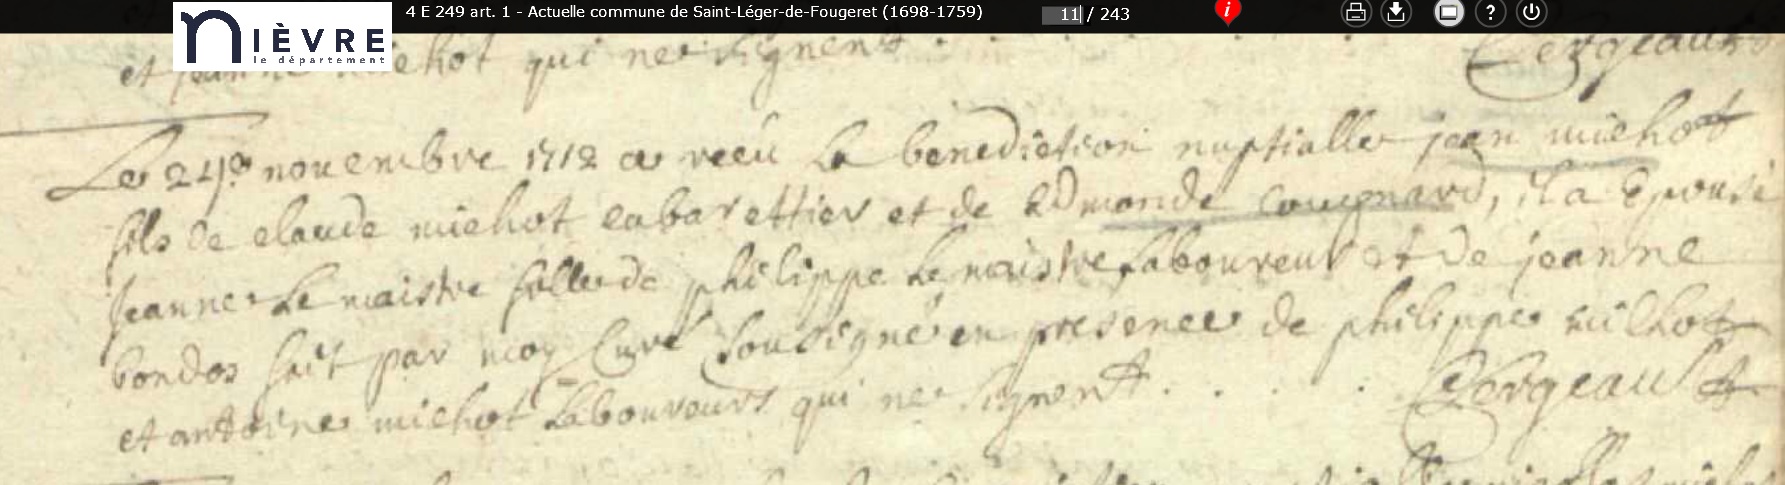 4 E 249 art. 1 - Actuelle commune de Saint-Léger-de-Fougeret (1698-1759)
11 / 243
NIÈVRE
le département
et jeanne michot qui ne signent
Le 24e novembre 1712 a receü la benediction nuptialle jean michot
fils de claude michot cabarettier et de Edmonde cougnard, il a Epousé
Jeanne Le maistre fille de philippe Le maistre Laboureur et de jeanne
bondos fait par moy Curé sousigné en presence de philippe michot
et antoine michot Laboureurs qui ne signent